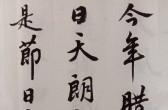 今年腊
日天朗
是節日